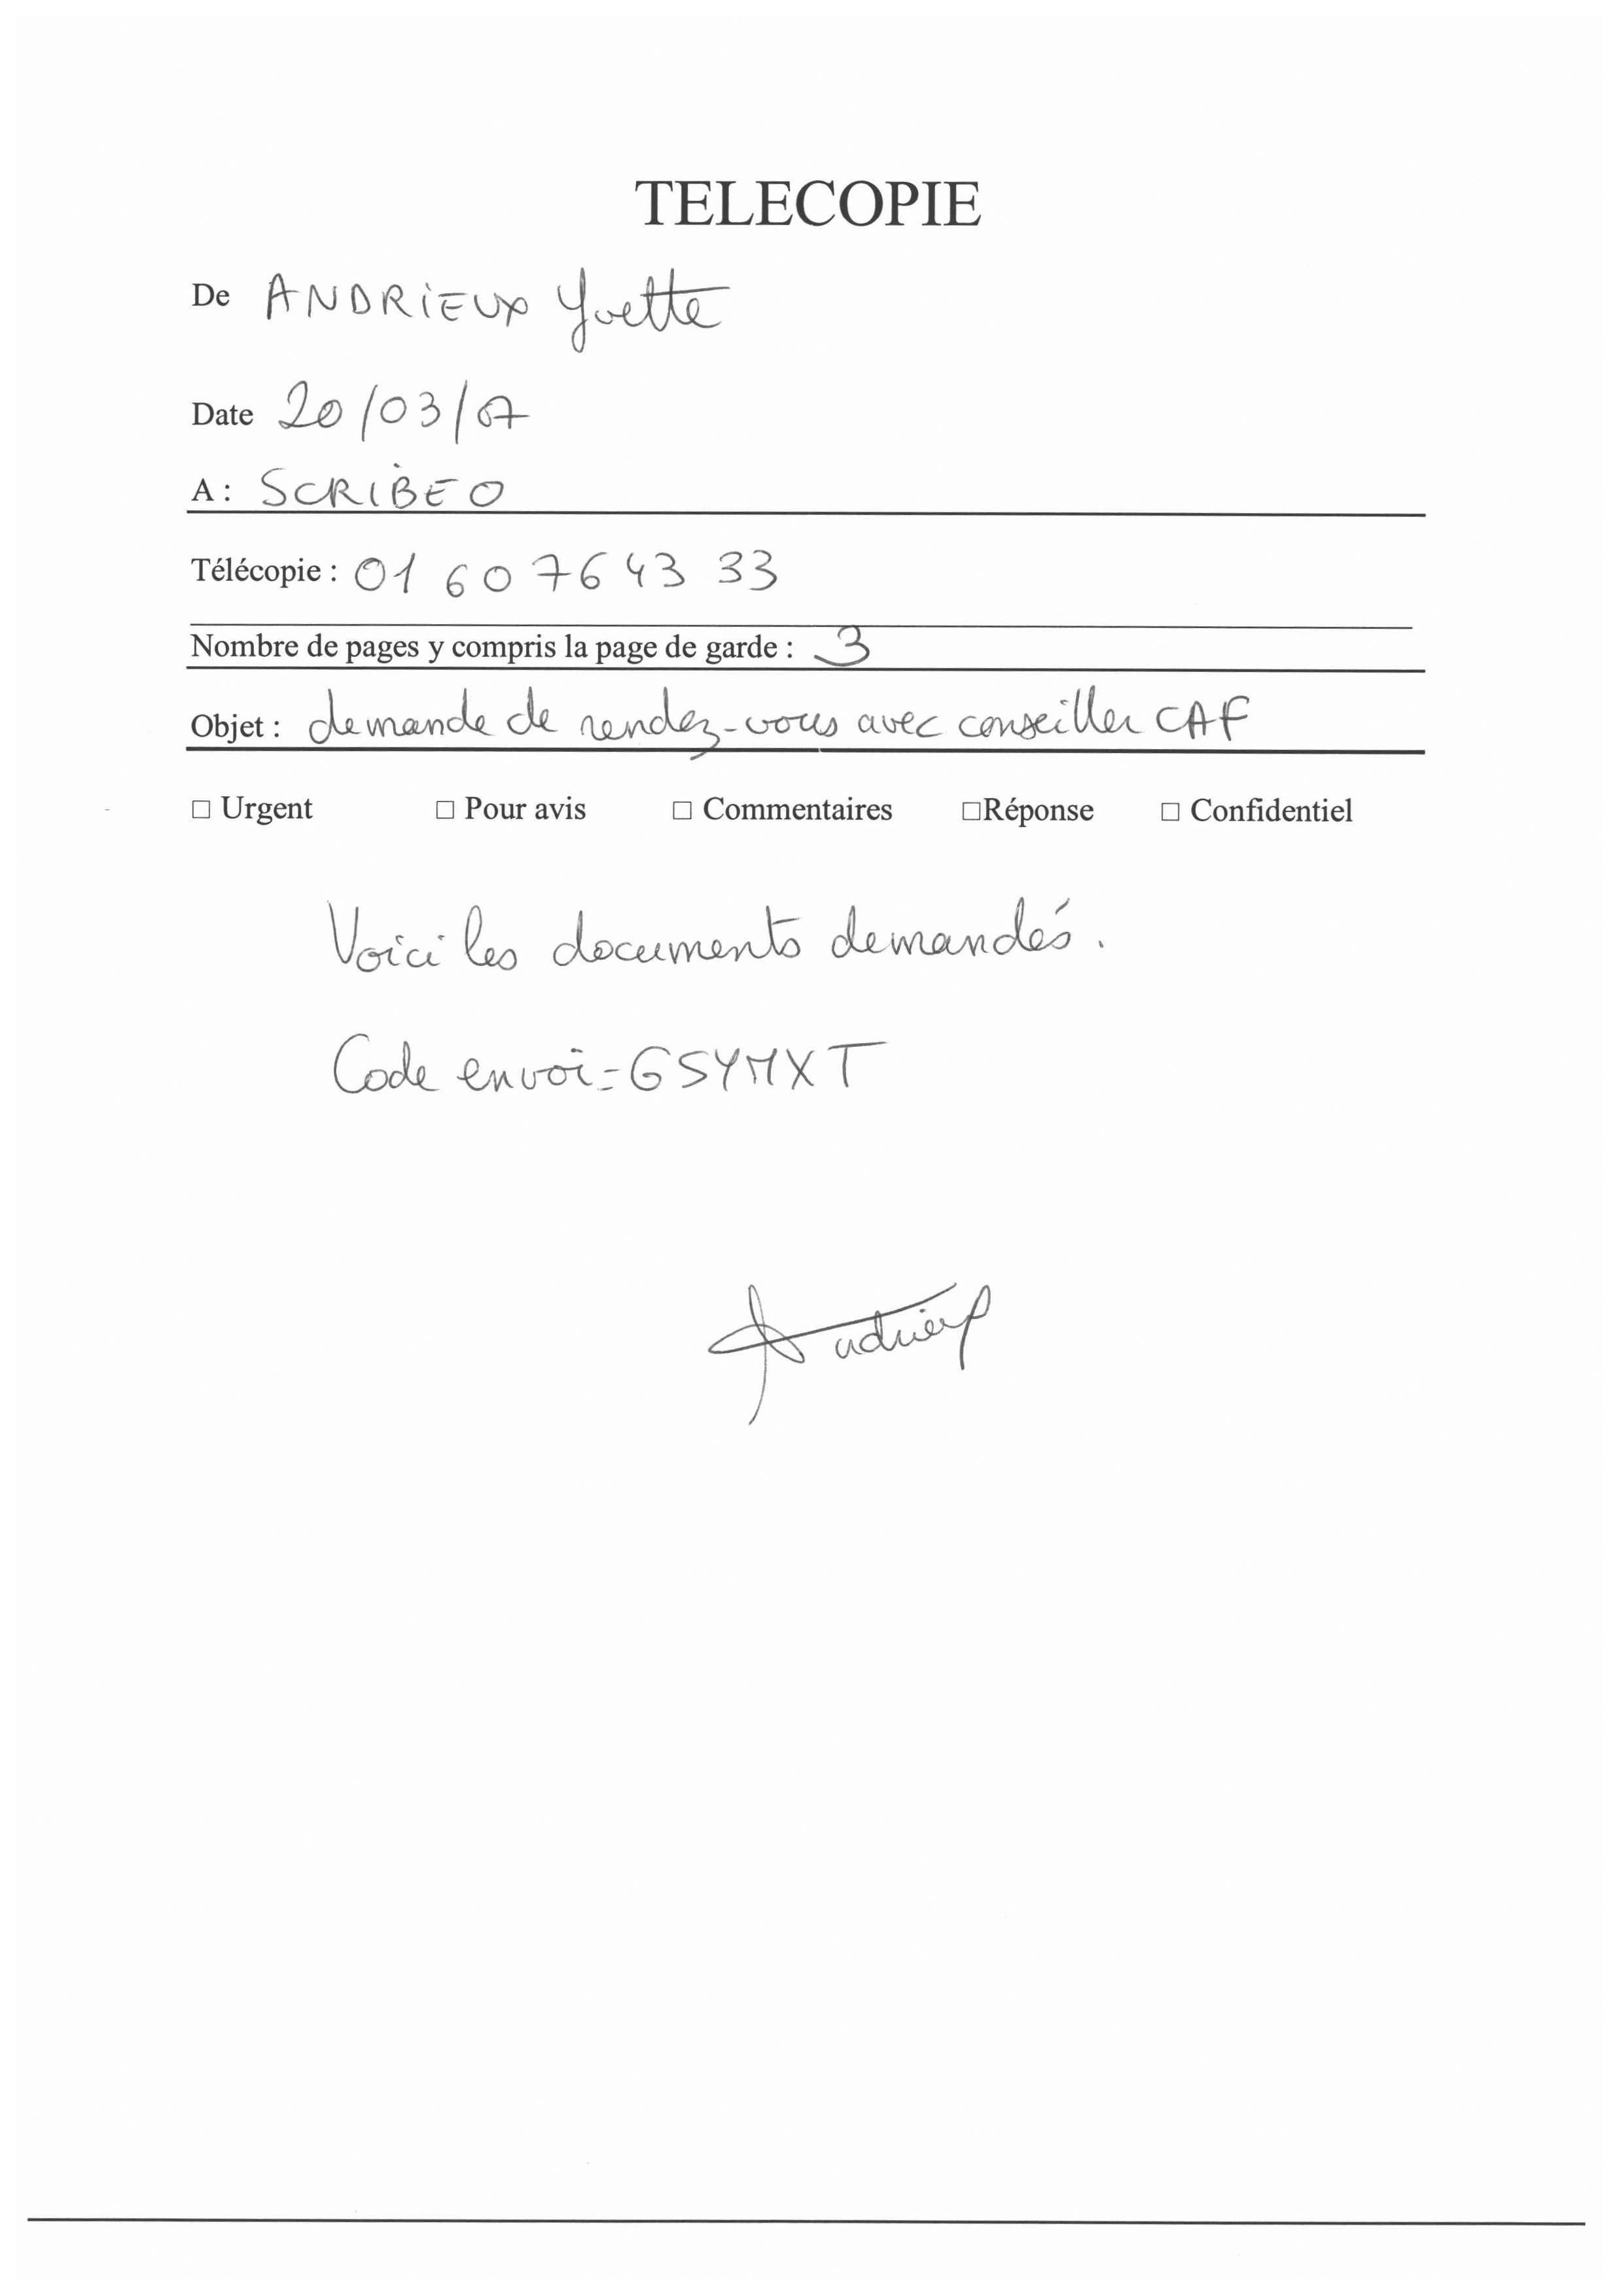 TELECOPIE
De ANDRIEUX Yvette
Date 20/03/07
A : SCRIBEO
Télécopie : 01 60 76 43 33
Nombre de pages y compris la page de garde : 3
Objet : demande de rendez-vous avec conseiller CAF
□ Urgent □ Pour avis □ Commentaires □Réponse □ Confidentiel
Voici les documents demandés.
Code envoi = GSYMXT
Andrieux